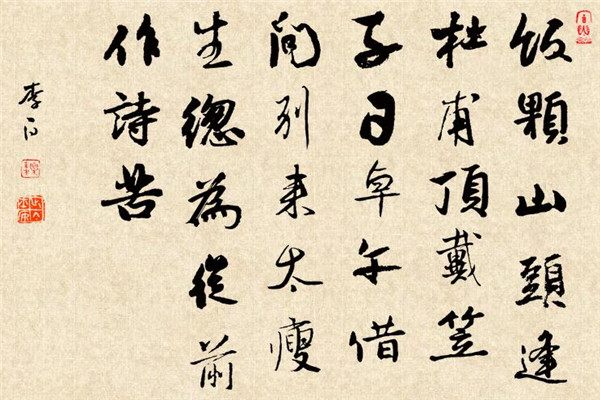 飯顆山頭逢
杜甫頂戴笠
子日卓午借
問別来太瘦
生總為從前
作詩苦
李白